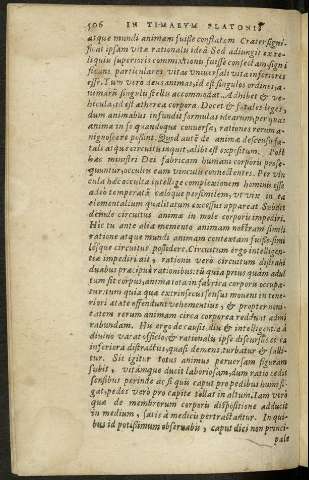 506 IN TIMAEVM PLATONIS
atque mundi animam fuisse conflatam. Crater signi-
ficat ipsam vitæ rationalis ideã. Sed adiungit ex re-
liquiis superioris commixtionis fuisse confectam, signi
ficans particulares vitas vniuersali vita inferiores
esse. Tum verò deus animas, id est singulos ordines, a-
nimarũ singulis stellis accommodat. Adhibet & ve-
hicula, id est ætherea corpora. Docet & fatales leges,
dum animabus infundit formulas idearum, per quas
anima in se quandoque conuersa, rationes rerum a-
gnoscere possint. Quod autē de anima descensu fa-
tali atque circuitu inquit, alibi est expositum. Post
hæc ministri Dei fabricam humani corporis prose-
quuntur, occultis eam vinculis connectentes. Per vin
cula hæc occulta intellige complexionem hominis esse
adeo temperatã
elementalium qualitatum excessus appareat. Subdit
deinde circuitus animæ in mole corporis impediri.
Hic tu ante alia memento animam nostram simili
ratione atque mundi animam contextam fuisse simi-
lésque circuitus possidere. Circuitum ergo intelligen-
tiæ impediri ait, rationis verò circuitum distrahi
duabus præcipuè rationibus: tũ quia prius quàm adul
tum sit corpus, anima tota in fabrica corporis occupa-
tur: tum quia quæ extrinsecus sensus mouent in tene-
riori ætate offendunt vehementius, & propter noui-
tatem rerum animam circa corporea reddunt admi
rabundam. His ergo de causis illic & intelligentia à
diuinis vacat officio, & rationalis ipse discursus et ea
inferiora distractus, quasi demens turbatur & falli-
tur. Sic igitur totus animus peruersam figuram
subit, vitámque ducit laboriosam, dum ratio cedit
sensibus perinde ac si quis caput pro pedibus humi fi-
gat, pedes verò pro capite tollat in altum. Iam verò
quæ de membrorum corporis dispositione adducit
in medium, satis à medicis pertractantur. In qui-
bus id potissimum obseruabis, caput dici non princi-
pale